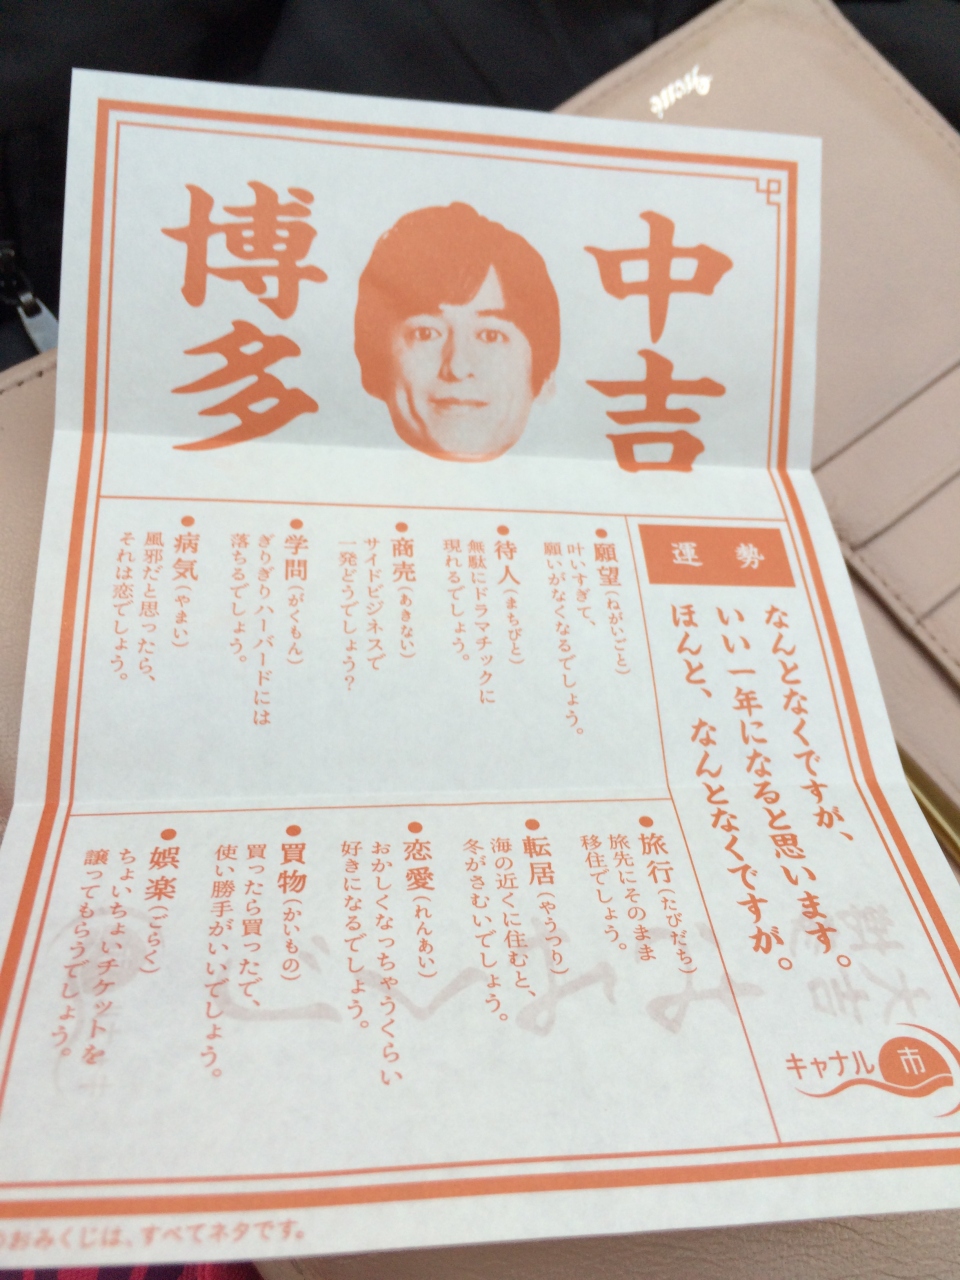 中吉
博多
運勢
なんとなくですが、
いい一年になると思います。
ほんと、なんとなくですが。
●願望(ねがいごと)
叶いすぎて、
願いがなくなるでしょう。
●待人(まちびと)
無駄にドラマチックに
現れるでしょう。
●商売(あきない)
サイドビジネスで
一発どうでしょう?
●学問(がくもん)
ぎりぎりハーバードには
落ちるでしょう。
●病気(やまい)
風邪だと思ったら、
それは恋でしょう。
●旅行(たびだち)
旅先にそのまま
移住でしょう。
●転居(やうつり)
海の近くに住むと、
冬がさむいでしょう。
●恋愛(れんあい)
おかしくなっちゃうくらい
好きになるでしょう。
●買物(かいもの)
買ったら買ったで、
使い勝手がいいでしょう。
●娯楽(ごらく)
ちょいちょいチケットを
譲ってもらうでしょう。
キャナル市
おみくじは、すべてネタです。